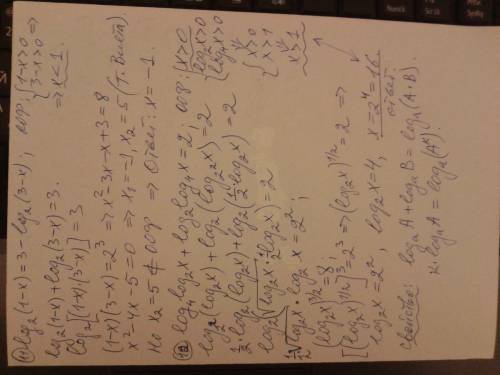 11) log₂(1-x) = 3 - log₂(3-x);  ООФ: {1-x>0
{3-x>0 =>
=> x<1.
log₂(1-x) + log₂(3-x) = 3.
log₂[(1-x)(3-x)] = 3
(1-x)(3-x) = 2³ => x²-3x-x+3 = 8
x²-4x-5=0 => x₁=-1, x₂=5 (т. Виета)
Но x₂=5 ∉ ООФ => Ответ: x=-1.
12) log₄log₂x + log₂log₄x = 2, ООФ: {x>0
{log₂x>0
{log₄x>0
½·log₂(log₂x) + log₂(log₂²x) = 2
{x>0
{x>1
½·log₂(log₂x) + log₂(½log₂x) = 2
{x>1
log₂(√log₂x · ½log₂x) = 2
½√log₂x · log₂x = 2²;
(log₂x)^3/2 = 8;
[(log₂x)^1/2]³ = 2³ => (log₂x)^1/2 = 2 =>
log₂x = 2², log₂x = 4, x = 2⁴ = 16.
ответ.
свойства: logₐA + logₐB = logₐ(A·B).